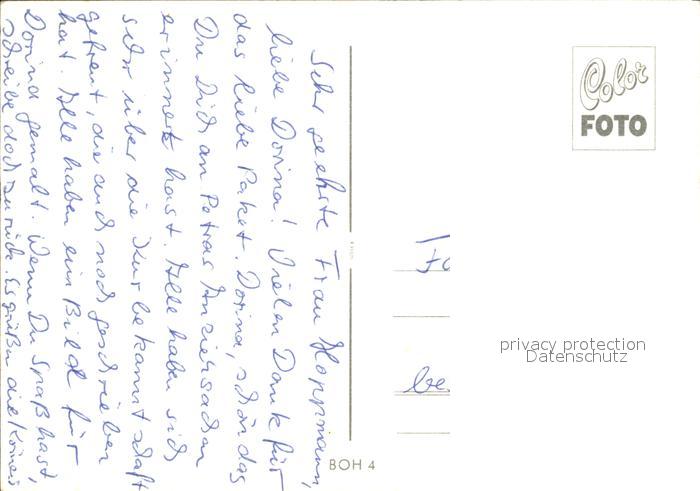 Sehr geehrte Frau Hoppmann,
liebe Dorina! Vielen Dank für
das liebe Paket. Dorina, schön das
Du Dich an Petras Anziehsachen
erinnert hast. Alle haben sich
sehr über die Kurbekanntschaft
gefreut, die auch noch geschrieben
hat. Alle haben ein Bild für
Dorina gemalt. Wenn Du Spaß hast,
schreibe doch zurück. Es grüßen die
Color
FOTO
BOH 4
privacy protection
Datenschutz